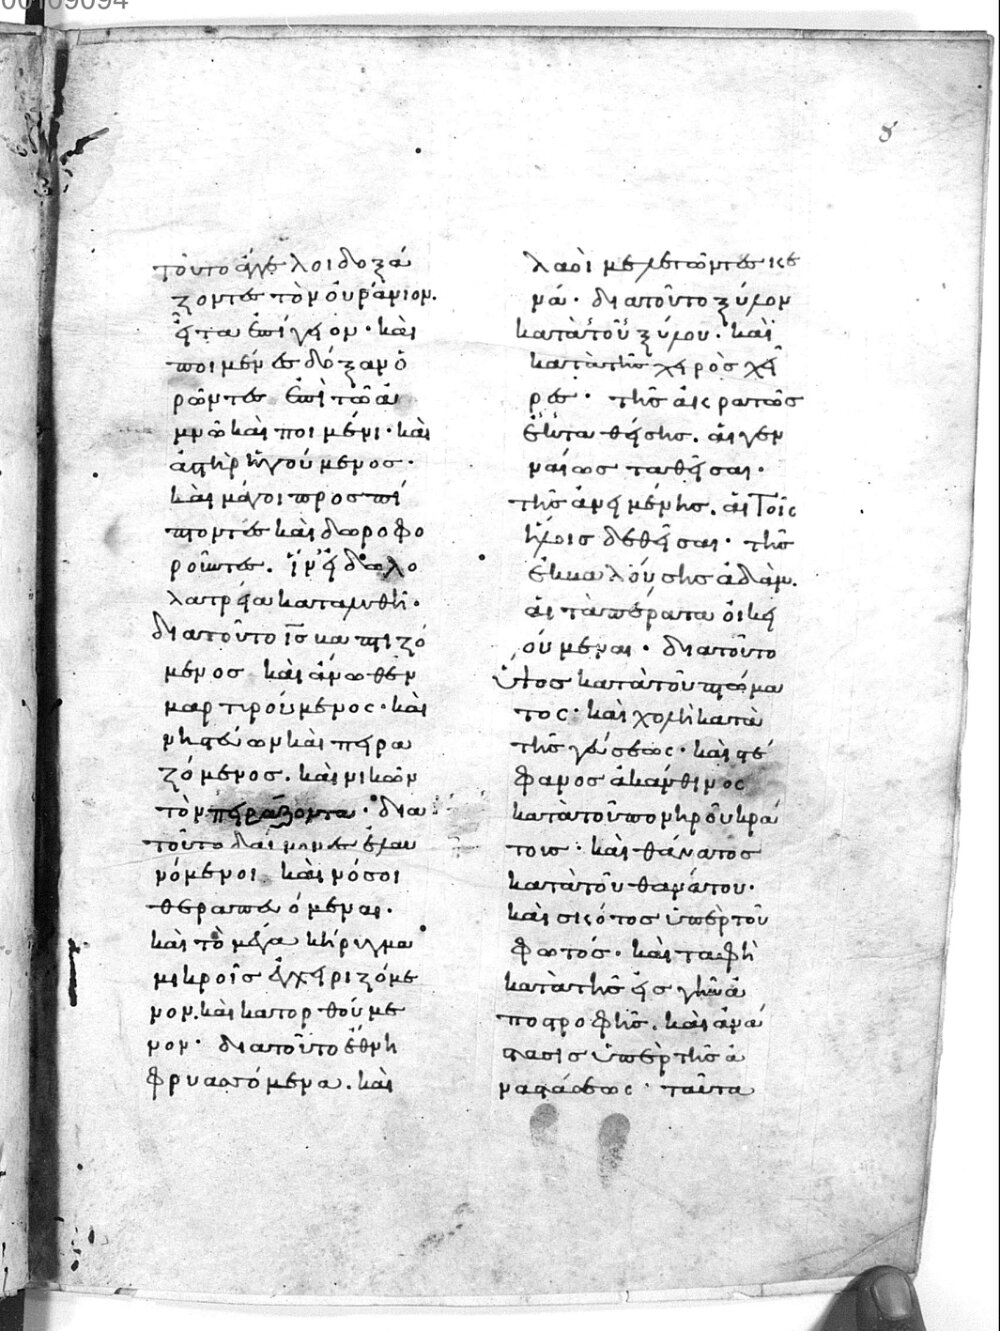 00109094
8
τοῦτο ἄγγελοι δοξά
ζοντες τὸν οὐράνιον.
εἶτα ἐπίγειον· καὶ
ποιμένες δόξαν ὁ
ρῶντες ἐπὶ τῶ ἀ
μνῶ καὶ ποιμένι· καὶ
ἀπῆρ ἡγούμενος·
καὶ μάγοι προσπί
πτοντες καὶ δωροφο
ροῦντες. ἵν' εἰδωλο
λατρεία καταλυθῆ·
διατοῦτο ις καπτιζό
μενος καὶ ἄνωθεν
μαρτιρούμενος· καὶ
νηστεύων καὶ πειρα
ζόμενος. καὶ νικῶν
τὸν πειράζοντα· δια
τοῦτο δαίμονες ἐλαυ
νόμενοι καὶ νόσοι
θεραπευόμεναι.
καὶ τὸ μέγα κήριγμα
μικροῖς ἐγχειριζόμε
νον. καὶ κατορθούμε
νον· διατοῦτο ἔθνη
φρυαστόμενα. καὶ
λαοὶ μελετῶντες κε
νά· διατοῦτο ξύλον
κατὰ τοῦ ξύλου· καὶ
κατὰ τῆς χειρὸς χεῖ
ρες· τῆς ἀκρατῶς
ἐκταθείσης. αἱ γεν
ναίως ταθεῖσαι·
τῆς ἀνειμένης. αἱ τοῖς
ἥλοις δεθεῖσαι· τῆς
ἐκβαλούσης ἀδὰμ.
αἱ τὰ πέρατα οἰκει
ούμεναι· διατοῦτο
ὕψος κατὰ τοῦ πτώμα
τος· καὶ χολὴ κατὰ
τῆς γεύσεως· καὶ στέ
φανος ἀκάνθινος
κατὰ τοῦ πονηροῦ κρά
τους· καὶ θάνατος
κατὰ τοῦ θανάτου·
καὶ σκότος ὑπὲρ τοῦ
φωτός· καὶ ταφὴ
κατὰ τῆς εἰς γῆν ἀ
ποστροφῆς. καὶ ἀνά
στασις ὑπὲρ τῆς ἀ
ναστάσεως· ταῦτα